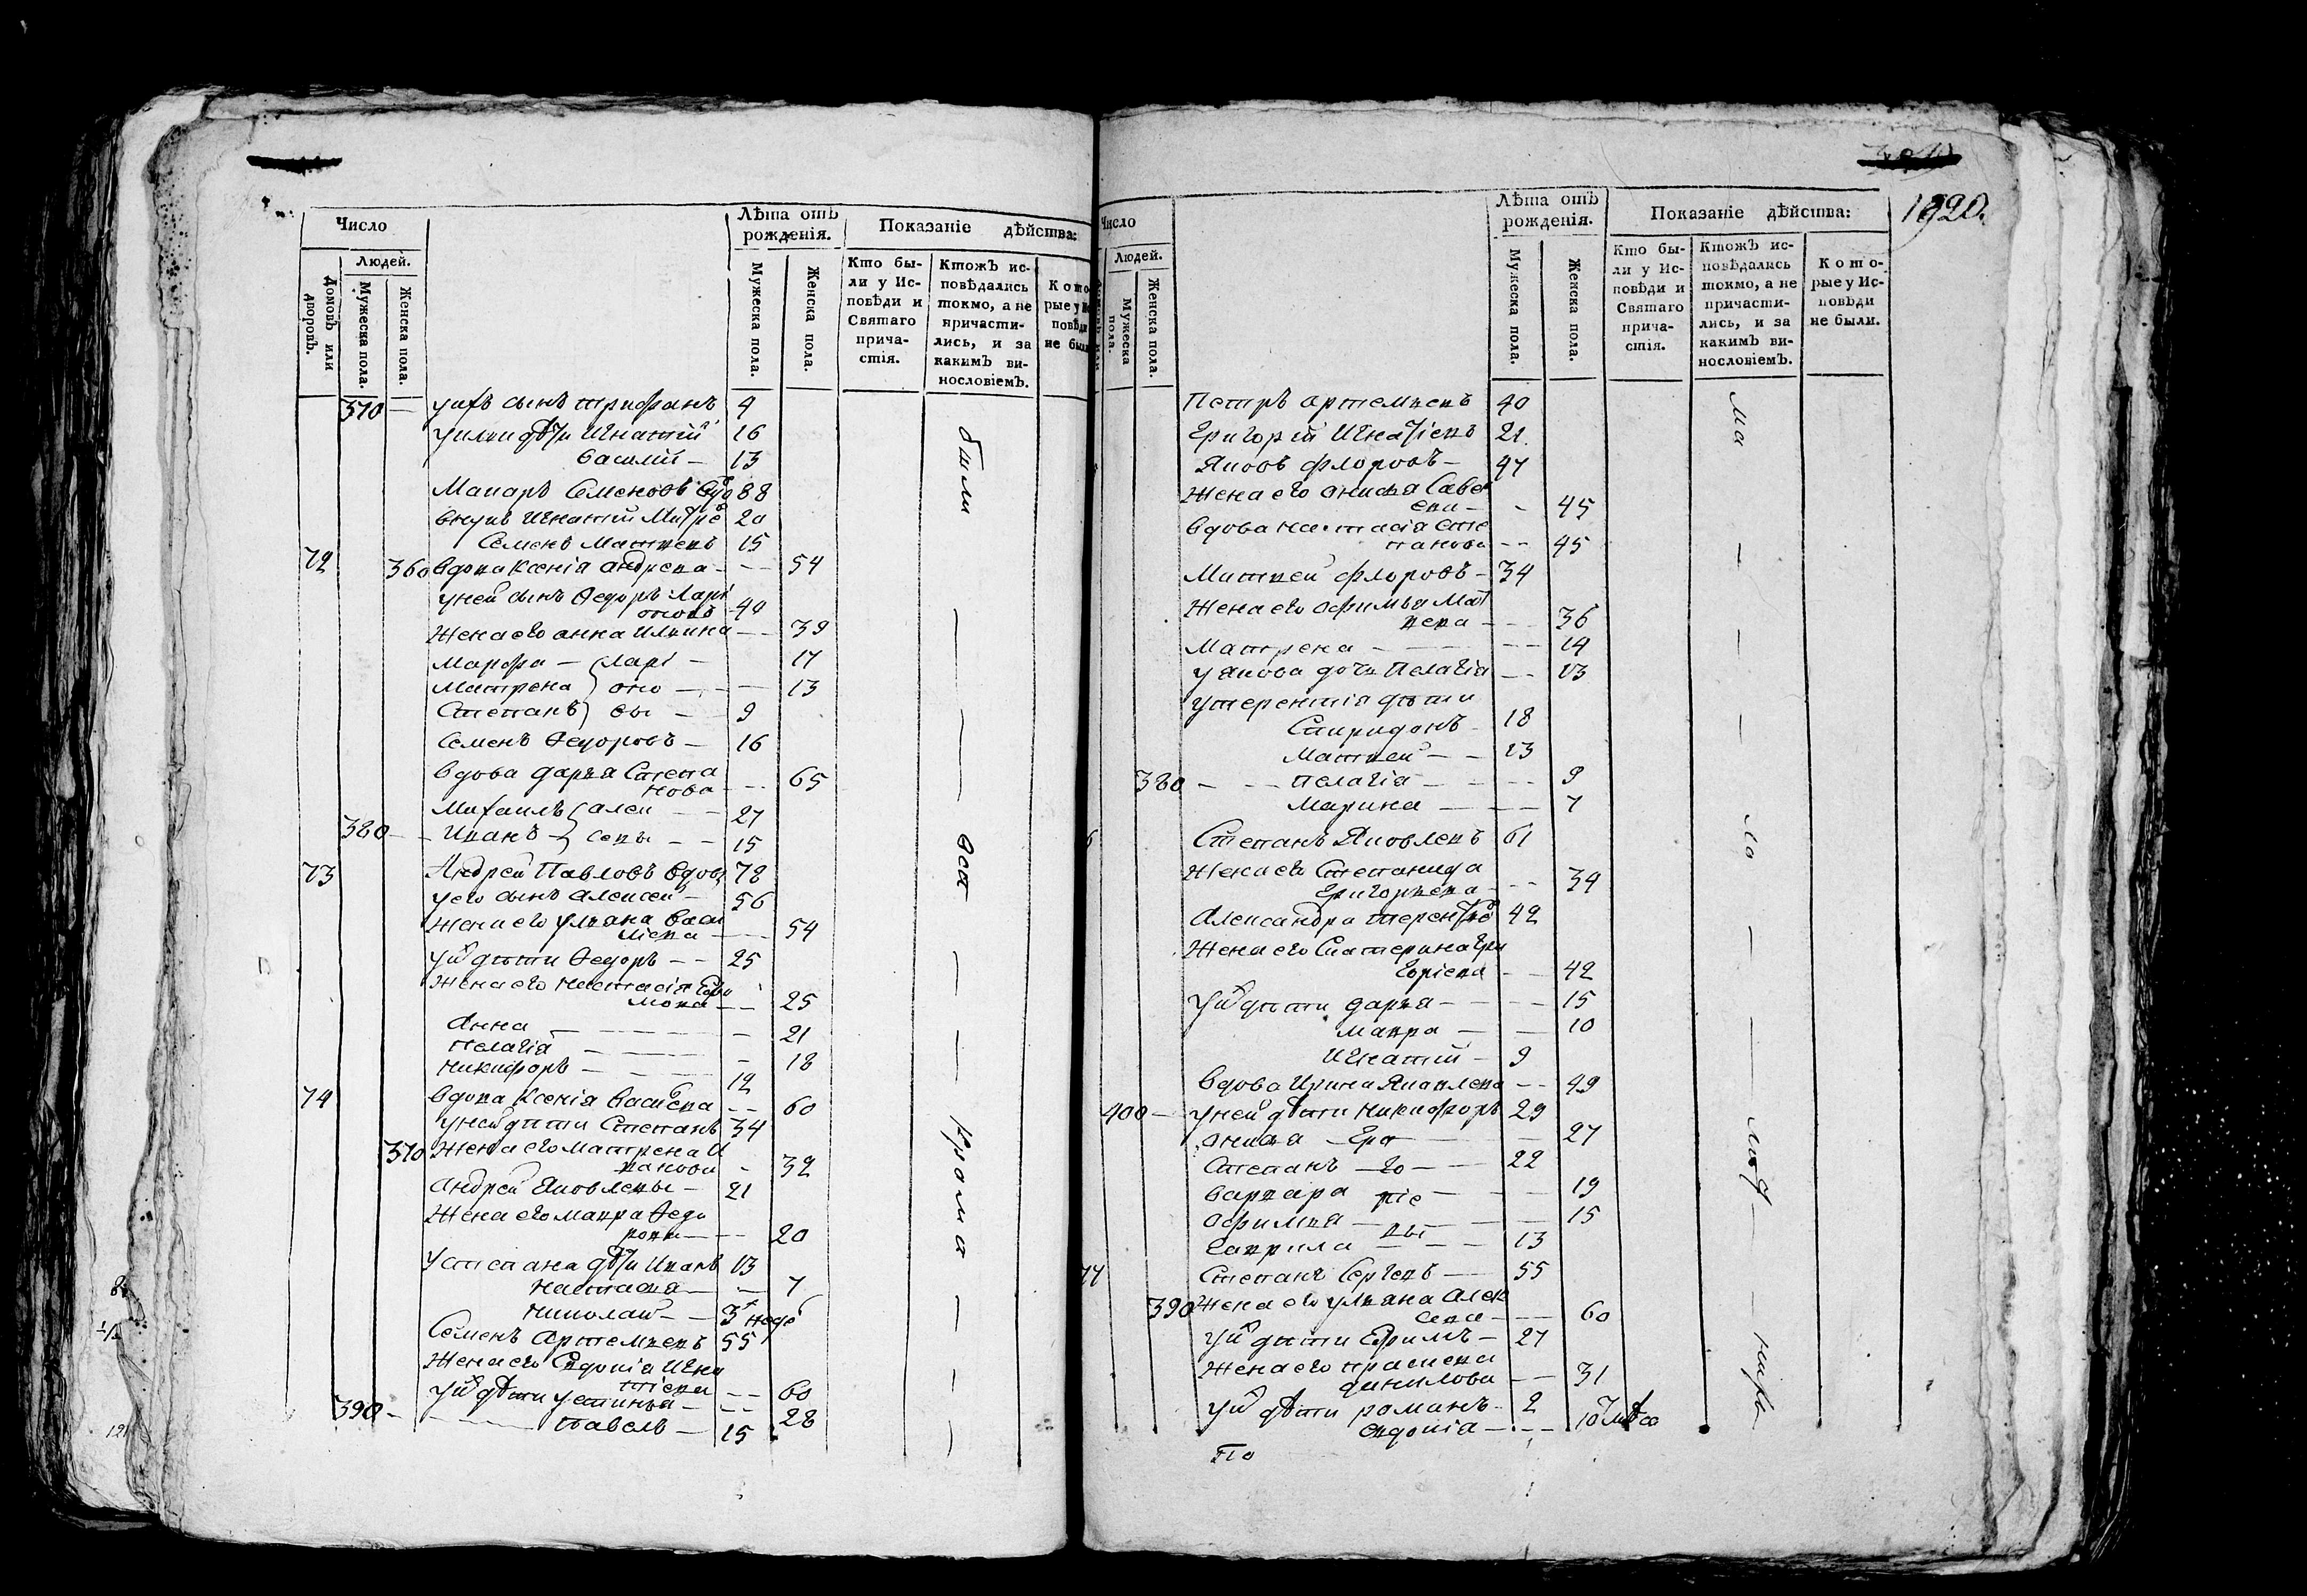 Число
Людей.
Домовъ или дворовъ.
Мужеска пола.
Женска пола.
Лѣта отъ рожденія.
Мужеска пола.
Женска пола.
Показаніе дѣйства:
Кто были у Исповѣди и Святаго причастія.
Ктожъ исповѣдались токмо, а не причастились, и за какимъ винословіемъ.
Которые у Исповѣди не были
370 — унихъ сынъ трифанъ 4
уилiи дѣти Игнатій 16
василій — 13
Макаръ Семеновъ вдо 88
внукъ Игнатій Митре 20
Семенъ Матвеевъ 15
72 360 вдова Ксенія андреева — 54
уней сынъ Ѳедоръ Ларі
оновъ 40
Жена его анна Ильина — 39
Марфа — Ларі — 17
Матрена оно — 13
Степанъ вы — 9
Семенъ Ѳедоровъ — 16
вдова дарья Степа
нова — 65
Михаилъ алек — 27
380 — Иванъ — сеевы — 15
73 Андрей Павловъ вдов 78
уего сынъ алексей — 56
Жена его ульяна васи
ліева — 54
уих дѣти Ѳедоръ — 25
Жена его настасія
25
Анна — 21
пелагія — 18
никифоръ — 12
74 вдова Ксенія васильева — 60
уней дѣти Степанъ 34
370 Жена его матрена И
ванова — 32
андрей Яковлевы — 21
Жена его мавра Ѳедо
рова — 20
устепана дѣти Иванъ 13
настасья — 7
николай — 3 неде
Семенъ артемьевъ 55
Жена его Евдокія Игна
тіева — 60
уих дѣти устинья — 28
390 — павелъ — 15
были
всѣ
крома
1920.
Число
Людей.
Мужеска пола.
Женска пола.
Лѣта отъ рожденія.
Мужеска пола.
Женска пола.
Показаніе дѣйства:
Кто были у Исповѣди и Святаго причастія.
Ктожъ исповѣдались токмо, а не причастились, и за какимъ винословіемъ.
Которые у Исповѣди не были.
Петръ артемьевъ 40
Григорій Игнатіевъ 21
Яковъ флоровъ — 47
Жена его анисья Саве
ева — 45
вдова настасія сте
панова — 45
Матвей флоровъ — 34
Жена его афимья Мат
веева — 36
Матрена — 14
уякова дочь Пелагія — 13
утерентія дѣти
Спиридонъ 18
Матвей — 13
380 — пелагія — 9
Марина — 7
Степанъ Яковлевъ 61
Жена его Степанида
Григорьева — 34
Александра терентье 42
Жена его Екатерина Гри
горіева — 42
уих дѣти дарья — 15
мавра — 10
Игнатій — 9
вдова Ирина Яковлева — 49
400 — уней дѣти никифоръ 29
анисья — Гри — 27
Степанъ — го — 22
варвара ріе — 19
афимья — 15
гаврила вы — 13
77 Степанъ Сергеевъ — 55
390 Жена его ульяна алек
сеева — 60
уих дѣти Ефимъ — 27
Жена его прасковья
данилова — 31
уих дѣти романъ — 2
евдокія — 10
По
ма
ло
лѣт
нихъ